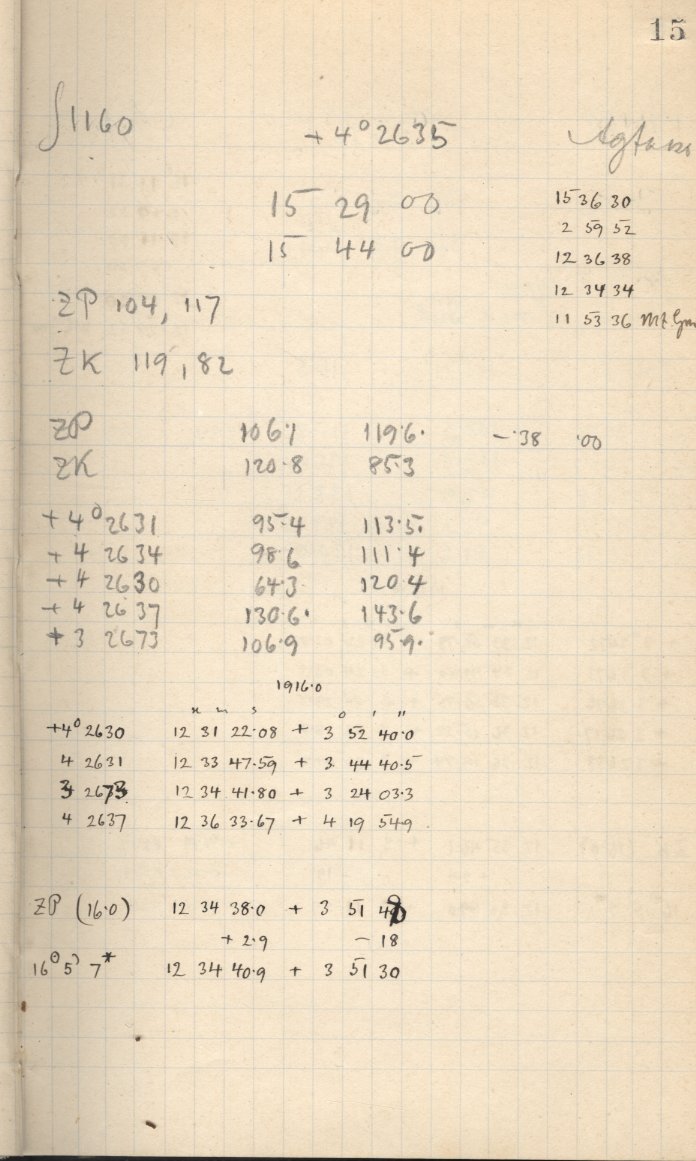 15
∫1160 +4° 2635
15 29 00 15 36 30
15 44 00 2 59 52
12 36 38
ZP 104, 117 12 34 34
11 53 36
ZK 119, 82
ZP 106·1 119·6· -·38 ·00
ZK 120·8 85·3
+4° 2631 95·4 113·5·
+4 2634 98·6 111·4
+4 2630 64·3 120·4
+4 2637 130·6· 143·6
+3 2673 106·9 95·9·
1916·0
h m s ° ' "
+4° 2630 12 31 22·08 + 3 52 40·0
4 2631 12 33 47·59 + 3 44 40·5
3 2673 12 34 41·80 + 3 24 03·3
4 2637 12 36 33·67 + 4 19 54·9
ZP (16·0) 12 34 38·0 + 3 51
+ 2·9 - 18
7* 12 34 40·9 + 3 51 30